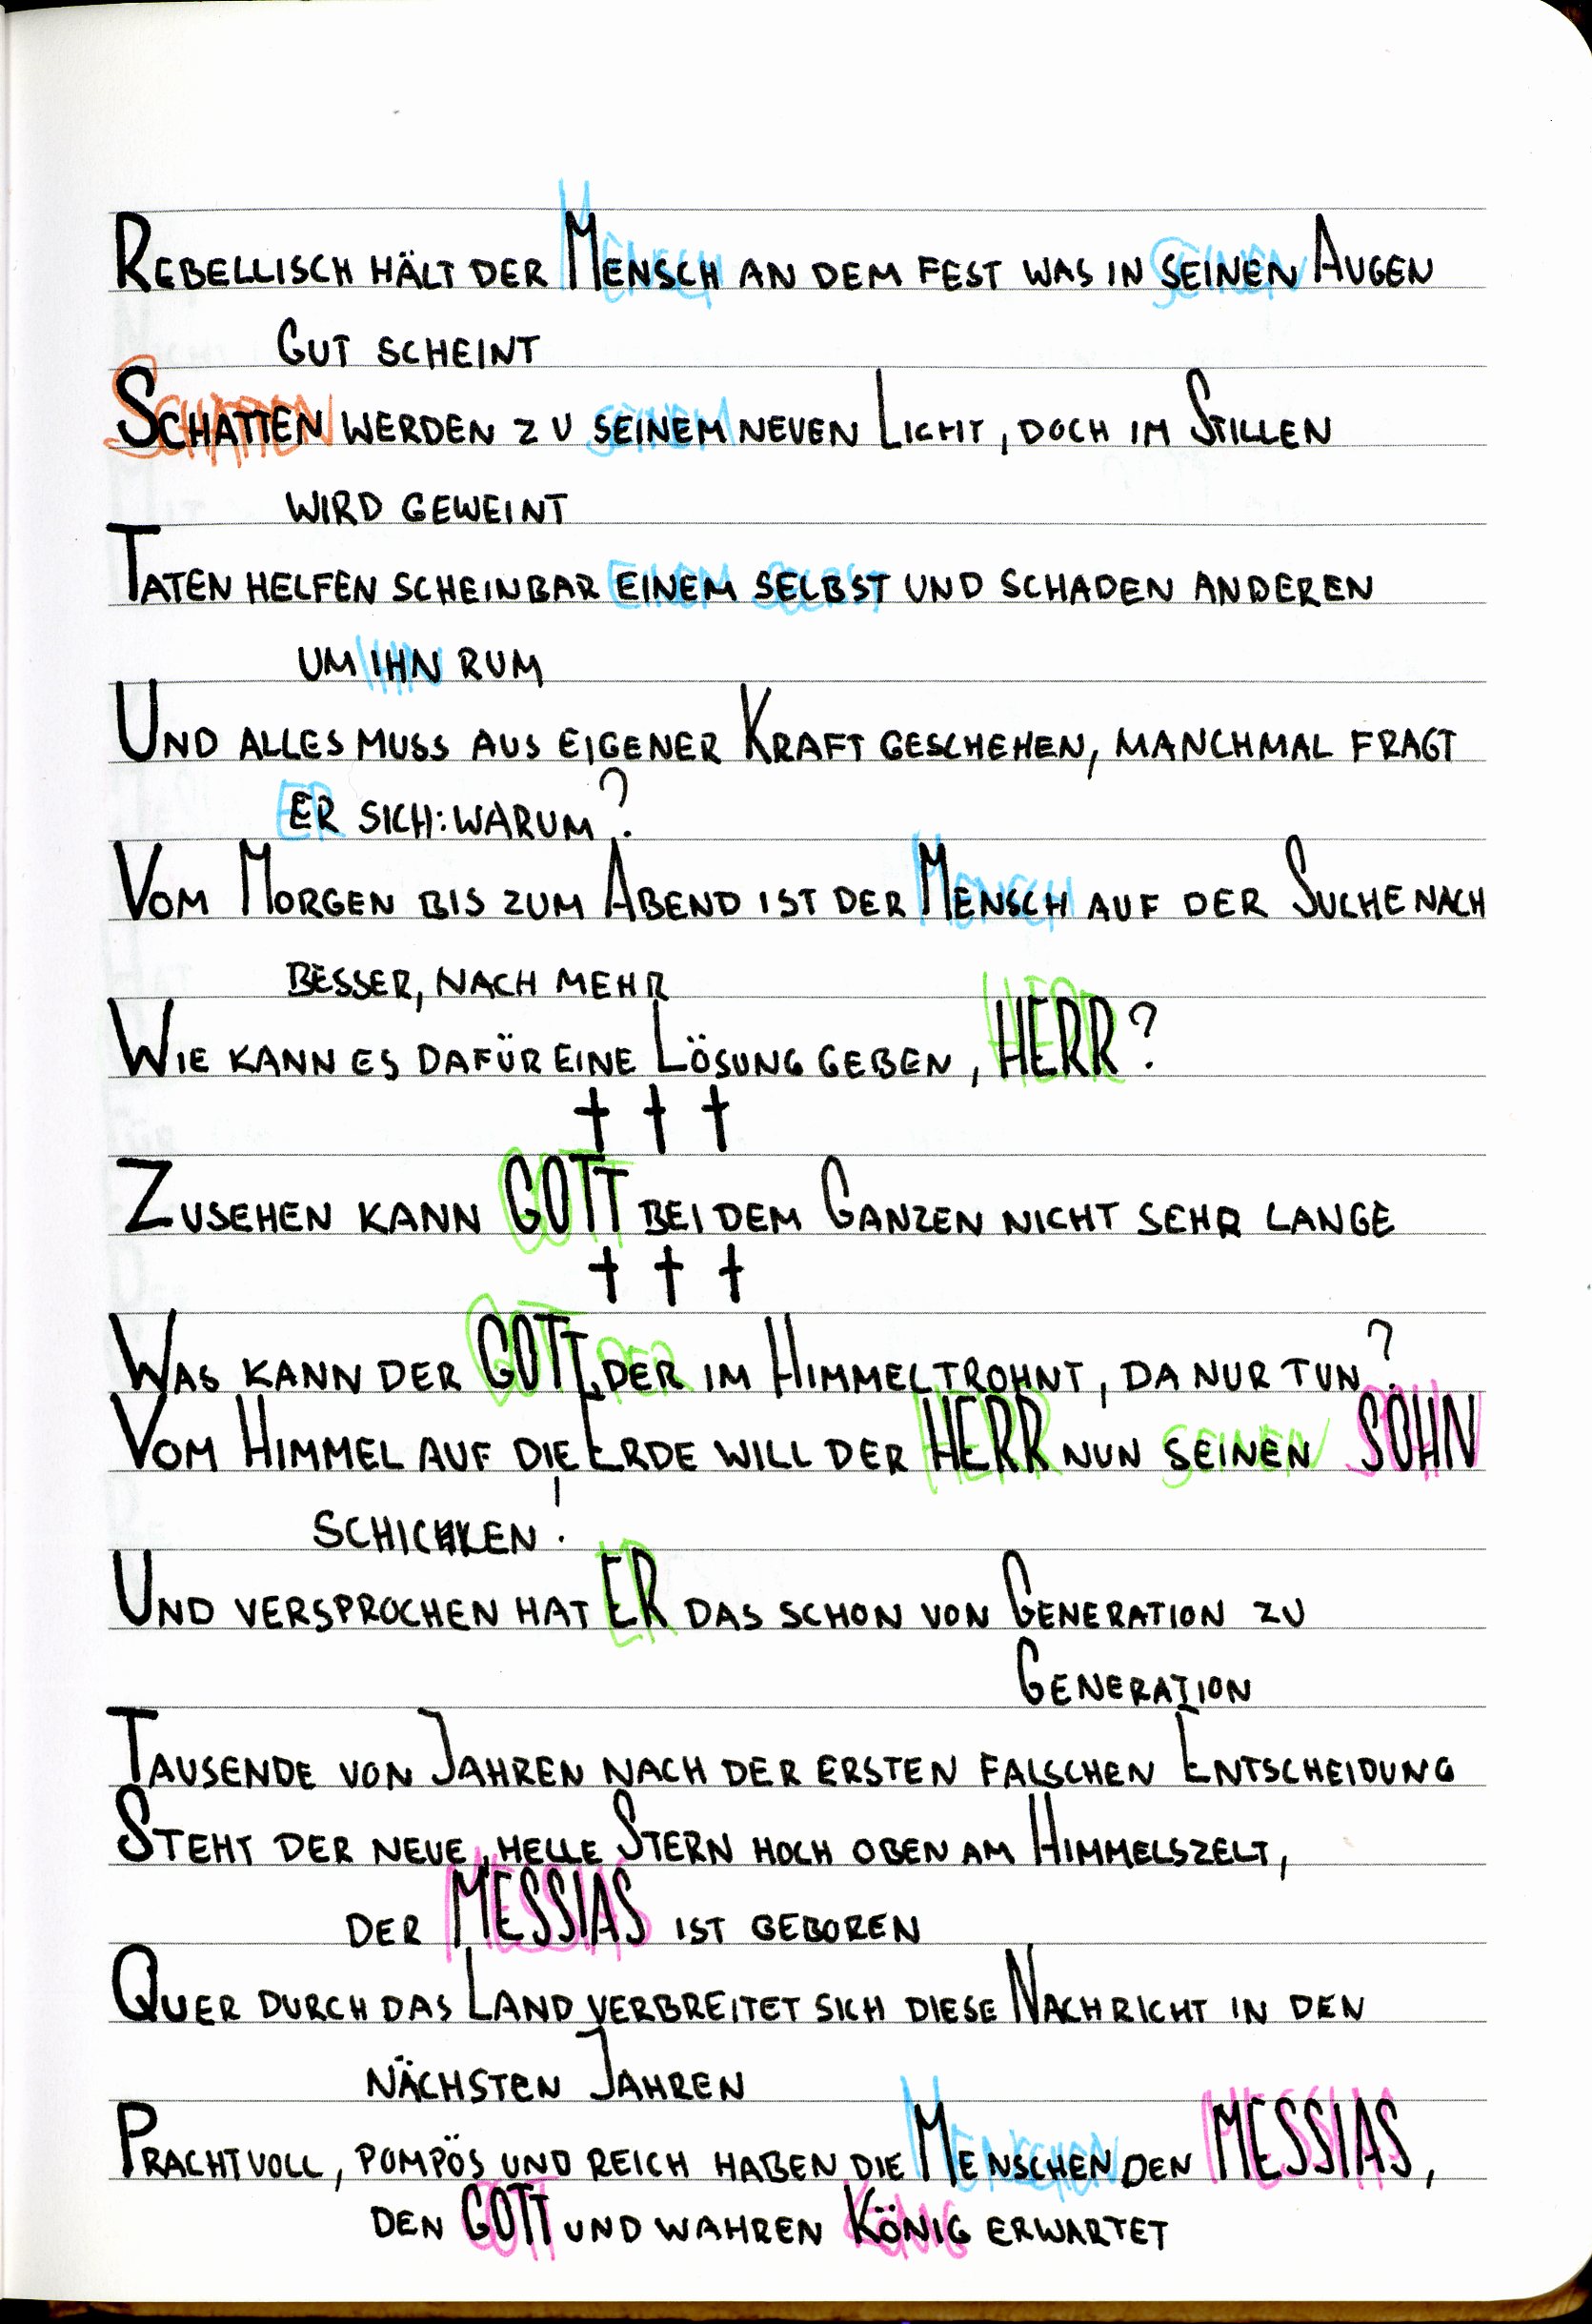 Rebellisch hält der Mensch an dem fest was in seinen Augen
Gut scheint
Schatten werden zu seinem neuen Licht, doch im Stillen
wird geweint
Taten helfen scheinbar einem selbst und schaden anderen
um ihn rum
Und alles muss aus eigener Kraft geschehen, manchmal fragt
er sich: warum?
Vom Morgen bis zum Abend ist der Mensch auf der Suche nach
besser, nach mehr
Wie kann es dafür eine Lösung geben, HERR?
† † †
Zusehen kann GOTT bei dem Ganzen nicht sehr lange
† † †
Was kann der GOTT, der im Himmel trohnt, da nur tun?
Vom Himmel auf die Erde will der HERR nun seinen SOHN
schicken!
Und versprochen hat ER das schon von Generation zu
Generation
Tausende von Jahren nach der ersten falschen Entscheidung
Steht der neue, helle Stern hoch oben am Himmelszelt,
der MESSIAS ist geboren
Quer durch das Land verbreitet sich diese Nachricht in den
nächsten Jahren
Prachtvoll, pompös und reich haben die Menschen den MESSIAS,
den GOTT und wahren König erwartet